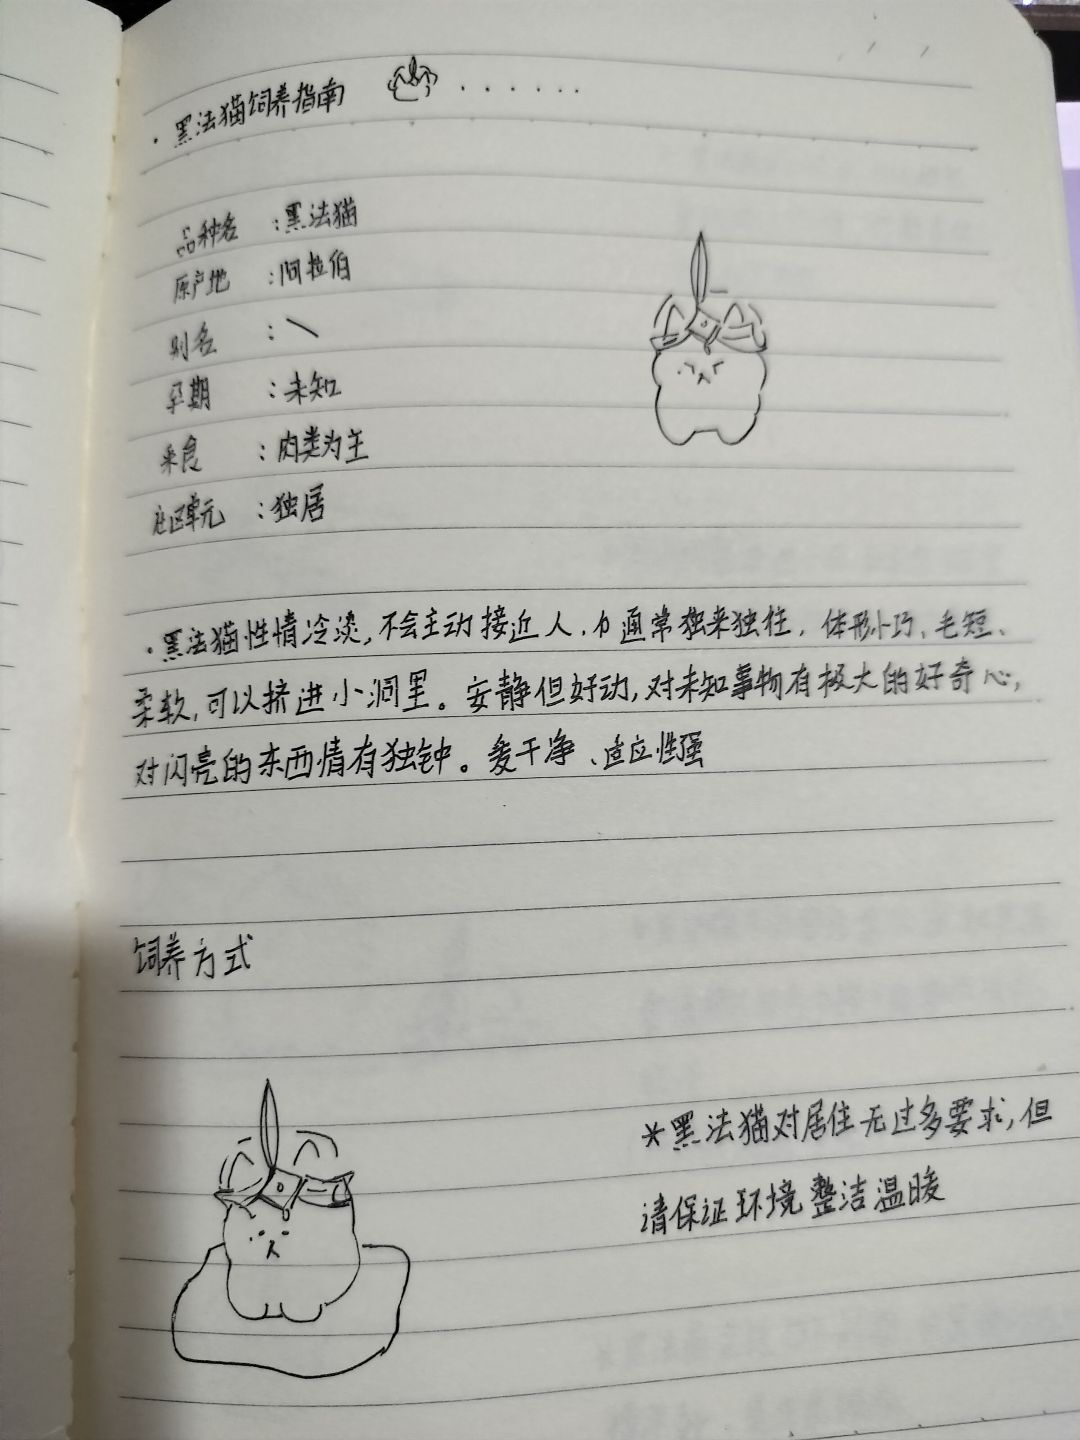 ·黑法猫饲养指南 ······
品种名 :黑法猫
原产地 :阿拉伯
别名 :\
孕期 :未知
采食 :肉类为主
社区单元 :独居
·黑法猫性情冷淡,不会主动接近人、通常独来独往、体形小巧、毛短、
柔软,可以挤进小洞里。安静但好动,对未知事物有极大的好奇心,
对闪亮的东西情有独钟。爱干净、适应性强
饲养方式
*黑法猫对居住无过多要求,但
请保证环境整洁温暖